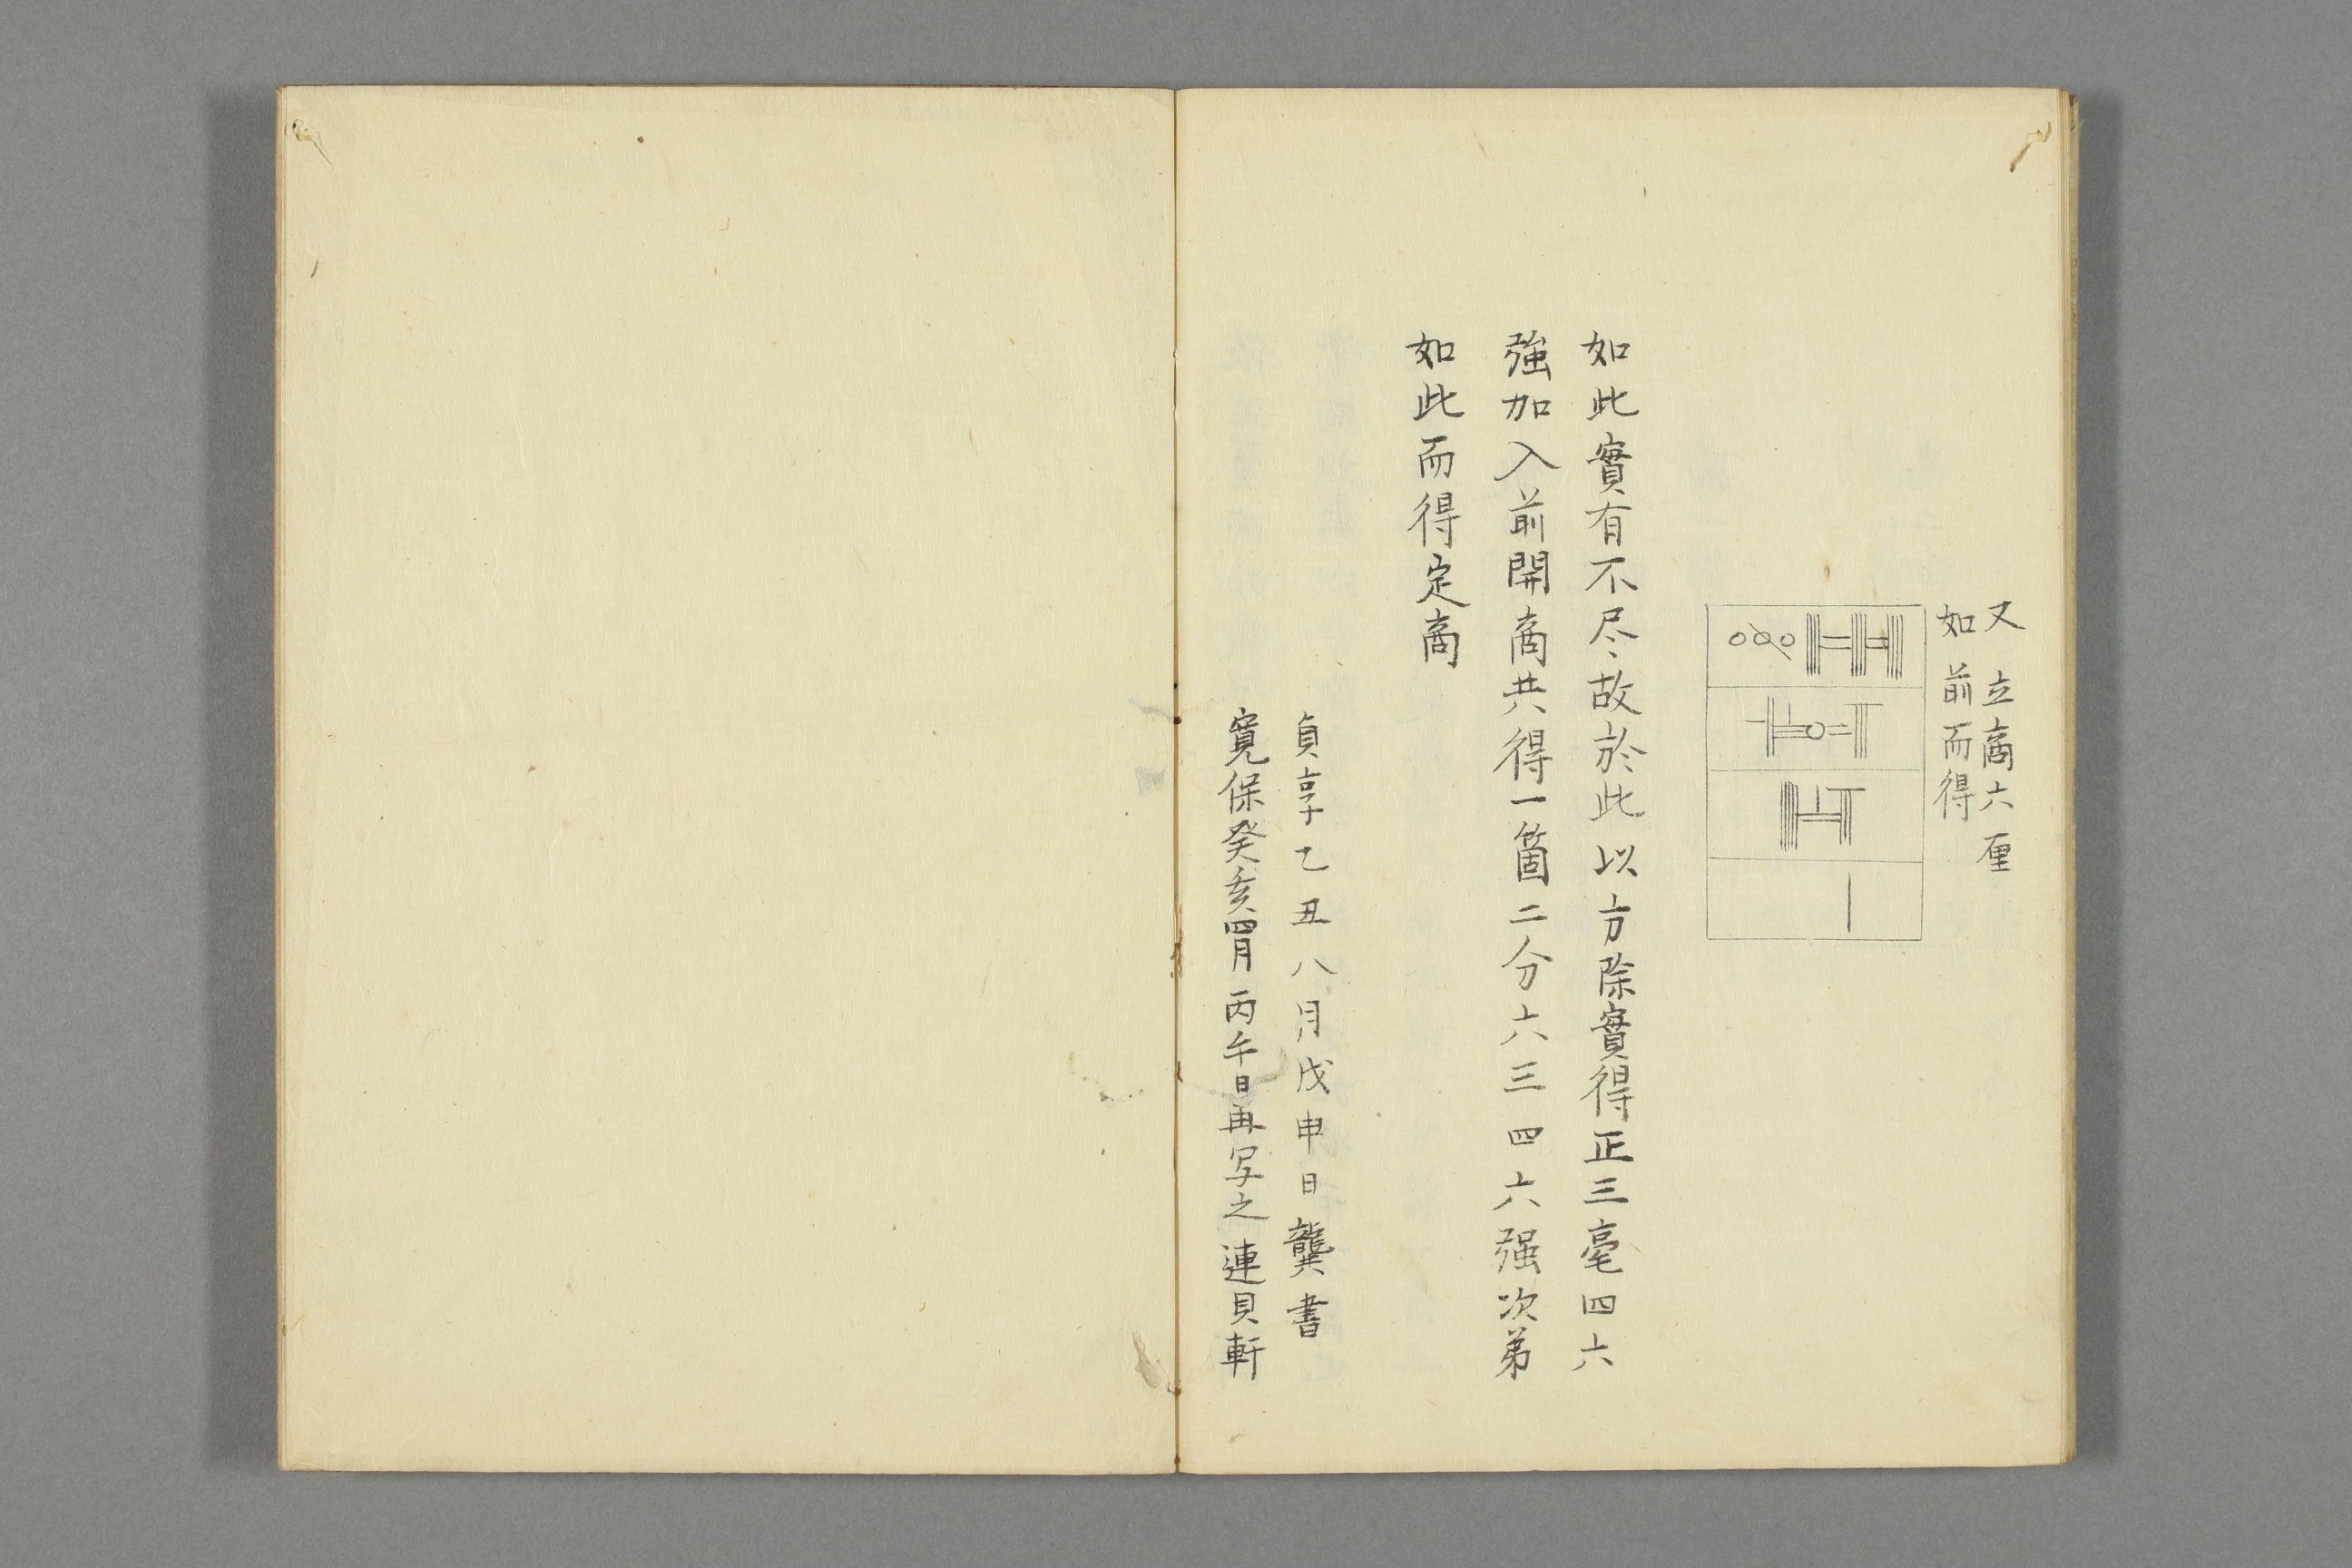 又立商六厘
如前而得
如此實有不尽故於此以方除實得正三毫四六
強加入前開商共得一箇二分六三四六强次第
如此而得定商
貞享乙丑八月戊申日襲書
寛保癸亥四月丙午日再写之連貝軒